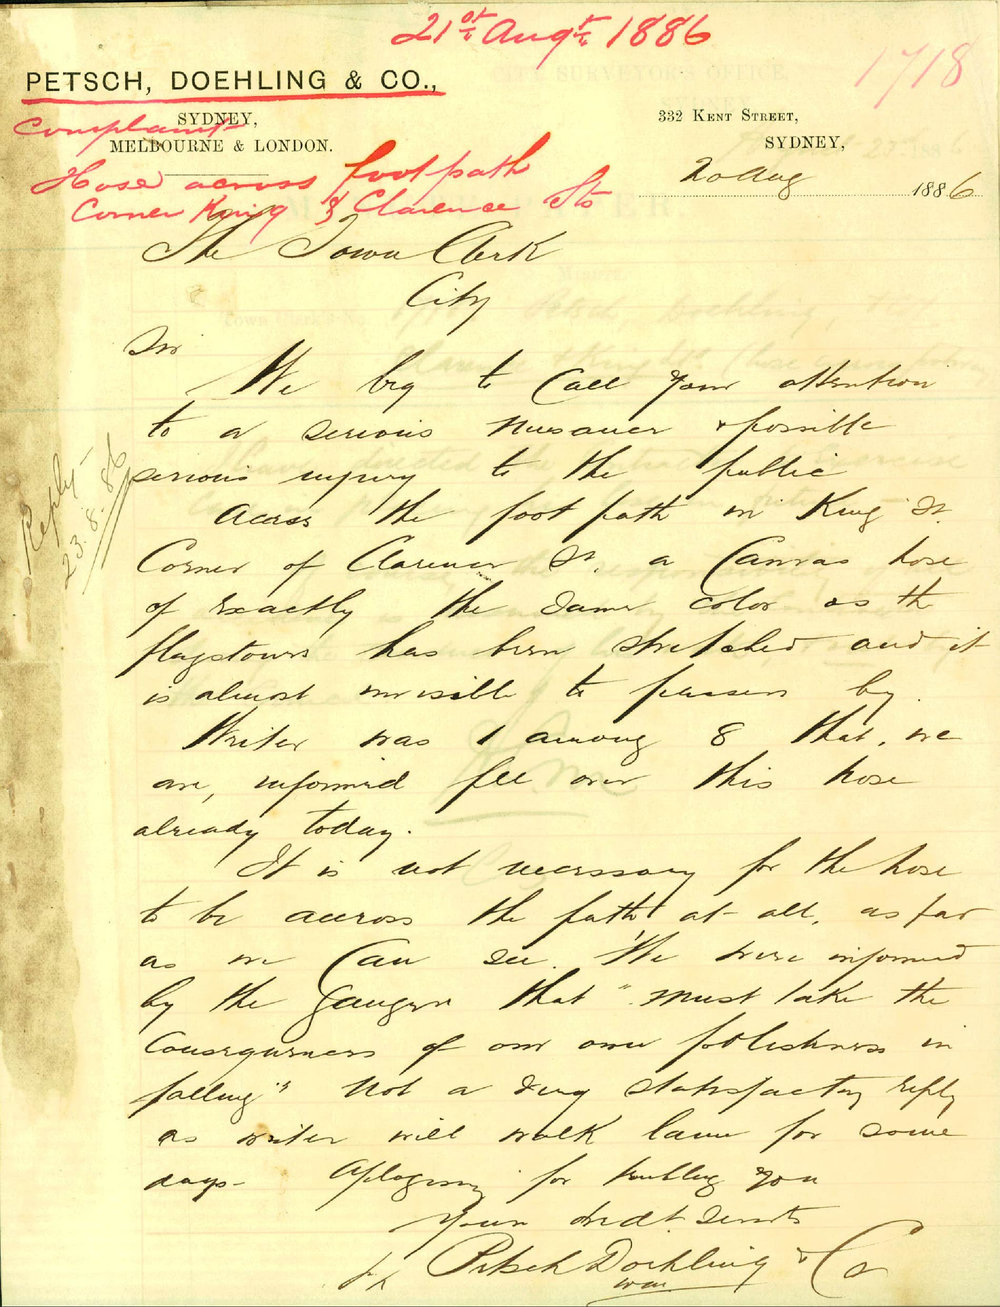 21st Augt 1886
1718
PETSCH, DOEHLING & CO.,
SYDNEY,
MELBOURNE & LONDON.
332 KENT STREET,
SYDNEY,
20 Aug 1886
Complaint
Hose across footpath
Corner King & Clarence Sts
The Town Clerk
City
Sir
We beg to Call your attention
to a serious nuisance & possible
serious injury to the public
Across the foot path in King St.
Corner of Clarence St. a Canvas hose
of exactly the same color as the
flagstones has been stretched and it
is almost invisible to passers by
Writer was 1 among 8 that, we
are, informed fell over this hose
already today.
It is not necessary for the hose
to be across the path at all, as far
as we Can see. We were informed
by the Ganger that "must take the
Consequences of our own foolishness in
falling" Not a very satisfactory reply
as writer will walk lame for some
days - Apologising for troubling you
Your obedt. Servts
Petsch Doehling & Co
Reply
23.8.86